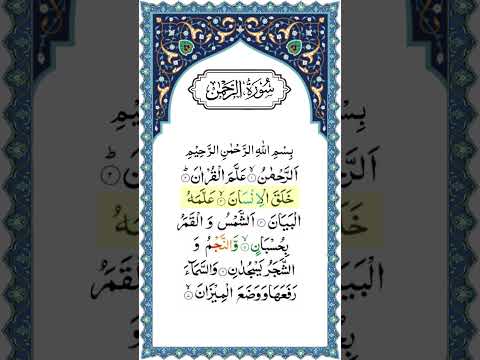 سُوْرَةُ الرَّحْمٰنِ
بِسْمِ اللهِ الرَّحْمٰنِ الرَّحِيْمِ
اَلرَّحْمٰنُ ۙ۱ عَلَّمَ الْقُرْاٰنَ ؕ۲
خَلَقَ الْاِنْسَانَ ۙ۳ عَلَّمَهُ
الْبَيَانَ ۴ اَلشَّمْسُ وَ الْقَمَرُ
بِحُسْبَانٍ ۙ۵ وَّالنَّجْمُ وَ
الشَّجَرُ يَسْجُدٰنِ ۶ وَالسَّمَآءَ
رَفَعَهَا وَوَضَعَ الْمِيْزَانَ ۙ۷